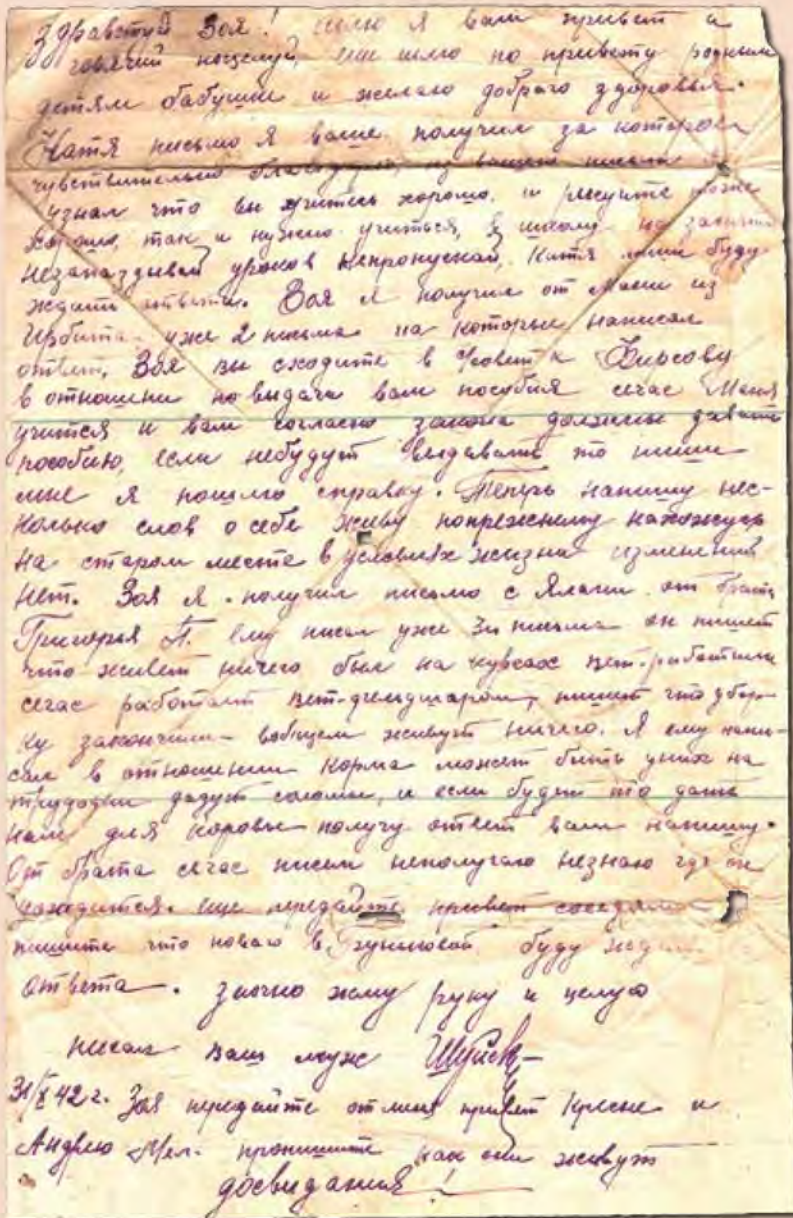 Здравствуй Зоя! шлю я вам привет и
горячий поцелуй, еще шлю по привету родным
детям бабушке и желаю доброго здоровья.
Катя письмо я ваше получил за которое
чувствительно благодарю, из вашего письма
узнал что вы учитесь хорошо, и рисуете тоже
хорошо, так и нужно учиться, в школу на занятия
незапаздывай уроков непропускай, Катя пиши буду
ждать ответа. Зоя я получил от Мани из
Ирбита уже 2 письма на которые написал
ответ, Зоя вы сходите в к Фирсову
в отношении повыдачи вам пособия сечас Маня
учится и вам согласно закона должны давать
пособию, если небудут выдавать то пиши
мне я пошлю справку. Теперь напишу нес-
колько слов о себе живу попрежнему нахожусь
на старом месте в условиях жизни изменений
нет. Зоя я получил письмо с от брата
Григорья П. ему писал уже 3и письма он пишет
что живет ничего был на курсах вет. работники
сечас работает вет-фельдшаром, пишет что убор-
ку закончили - вобщем живут ничего. Я ему напи-
сал в отношении корма может быть уних на
трудодни дадут соломы, и если будет то дать
нам для коровы получу ответ вам напишу.
От брата сечас писем неполучаю незнаю где он
находится. еще передайте привет соседям
пишите что новаго в буду ждать
ответа. жму руку и целую
писал ваш муж
31/X 42 г. Зоя передайте от меня привет Кресне и
Андрею Мел. пропишите как они живут
досвидания!